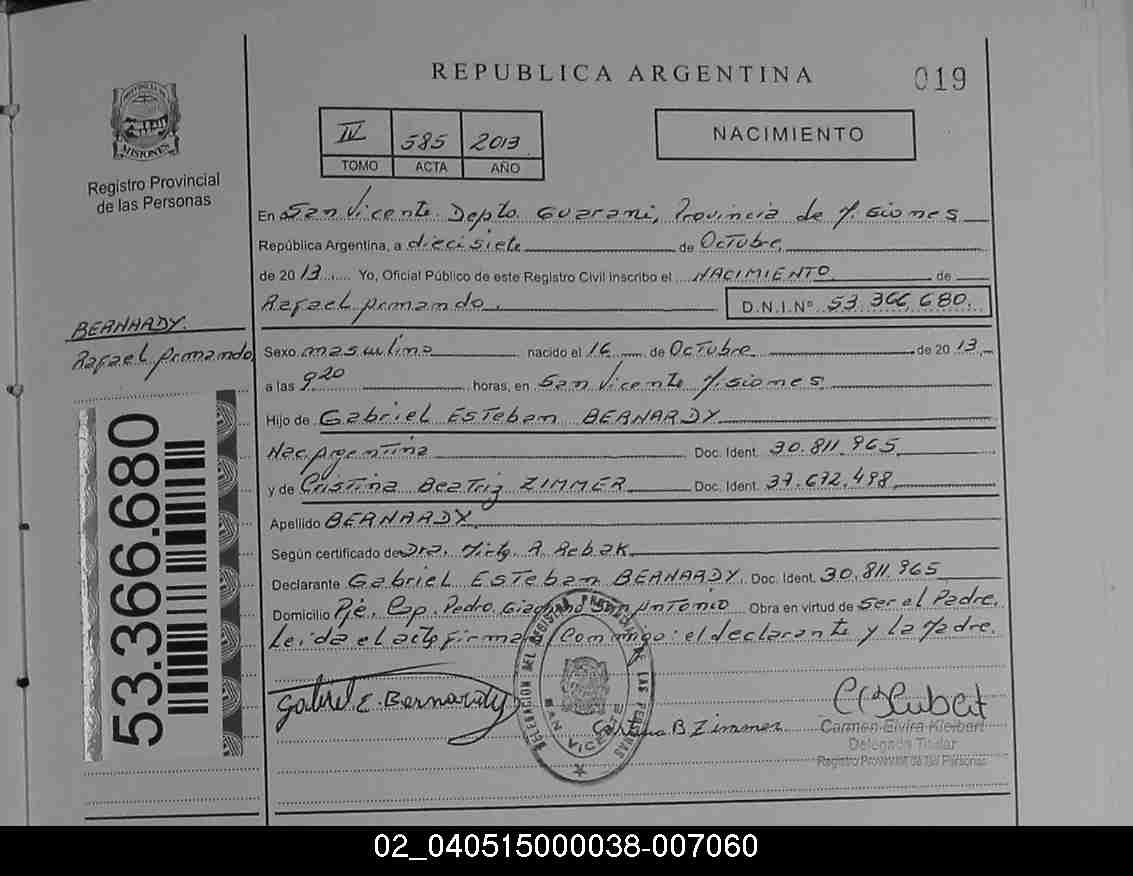 REPUBLICA ARGENTINA
019
PROVINCIA DE
MISIONES
Registro Provincial
de las Personas
IV 585 2013
TOMO ACTA AÑO
NACIMIENTO
En San Vicente Depto. Guarani, Provincia de Misiones
República Argentina, a diecisiete de Octubre
de 2013 Yo, Oficial Público de este Registro Civil inscribo el NACIMIENTO de
Rafael Armando. D.N.I.Nº 53.366.680.
BERNARDY.
Rafael Armando
Sexo masculino nacido el 16 de Octubre de 2013,
a las 9 20 horas, en San Vicente Misiones
Hijo de Gabriel Esteban BERNARDY
Nac. Argentina Doc. Ident. 30.811.965
y de Cristina Beatriz ZIMMER Doc. Ident. 37.672.498
Apellido BERNARDY
Según certificado de Dra. R. Rebak
Declarante Gabriel Esteban BERNARDY. Doc. Ident. 30.811.965
Domicilio Pje. Cap. Pedro San Antonio Obra en virtud de Ser el Padre.
Leida el acta firman Conmigo: el declarante y la Madre.
53.366.680
Gabriel E. Bernardy
DELEGACION DEL REGISTRO PROVINCIAL DE LAS PERSONAS
SAN VICENTE
B Zimmer
Carmen Elvira Kleibert
Delegada Titular
Registro Provincial de las Personas
02_040515000038-007060